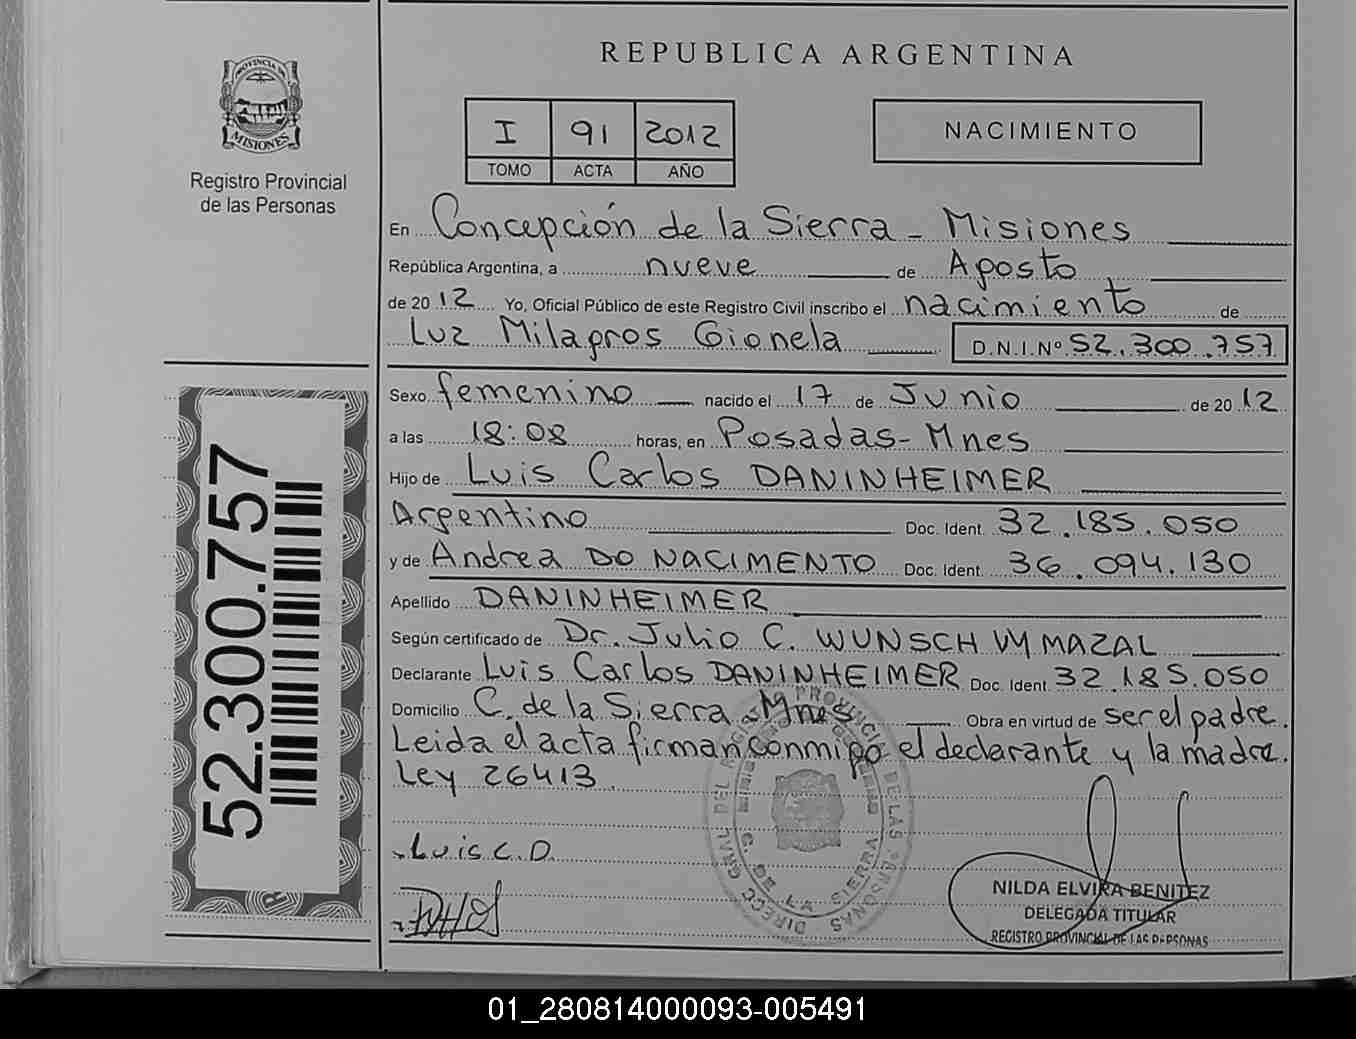 PROVINCIA DE
MISIONES
Registro Provincial
de las Personas
REPUBLICA ARGENTINA
I 91 2012
TOMO ACTA AÑO
NACIMIENTO
En Concepción de la Sierra - Misiones
República Argentina, a nueve de Agosto
de 20 12 Yo, Oficial Público de este Registro Civil inscribo el nacimiento de
Luz Milagros Gionela D.N.I.Nº 52.300.757
Sexo femenino nacido el 17 de Junio de 20 12
a las 18:08 horas, en Posadas - Mnes
Hijo de Luis Carlos DANINHEIMER
Argentino Doc. Ident. 32.185.050
y de Andrea DO NACIMENTO Doc. Ident. 36.094.130
Apellido DANINHEIMER
Según certificado de Dr. Julio C. WUNSCH VY MAZAL
Declarante Luis Carlos DANINHEIMER Doc. Ident. 32.185.050
Domicilio C. de la Sierra - Mnes Obra en virtud de ser el padre.
Leida el acta firman conmigo el declarante y la madre.
Ley 26413
Luis C. D.
52.300.757
C. DE LA SIERRA
NILDA ELVIRA BENITEZ
DELEGADA TITULAR
REGISTRO PROVINCIAL DE LAS PERSONAS
01_280814000093-005491